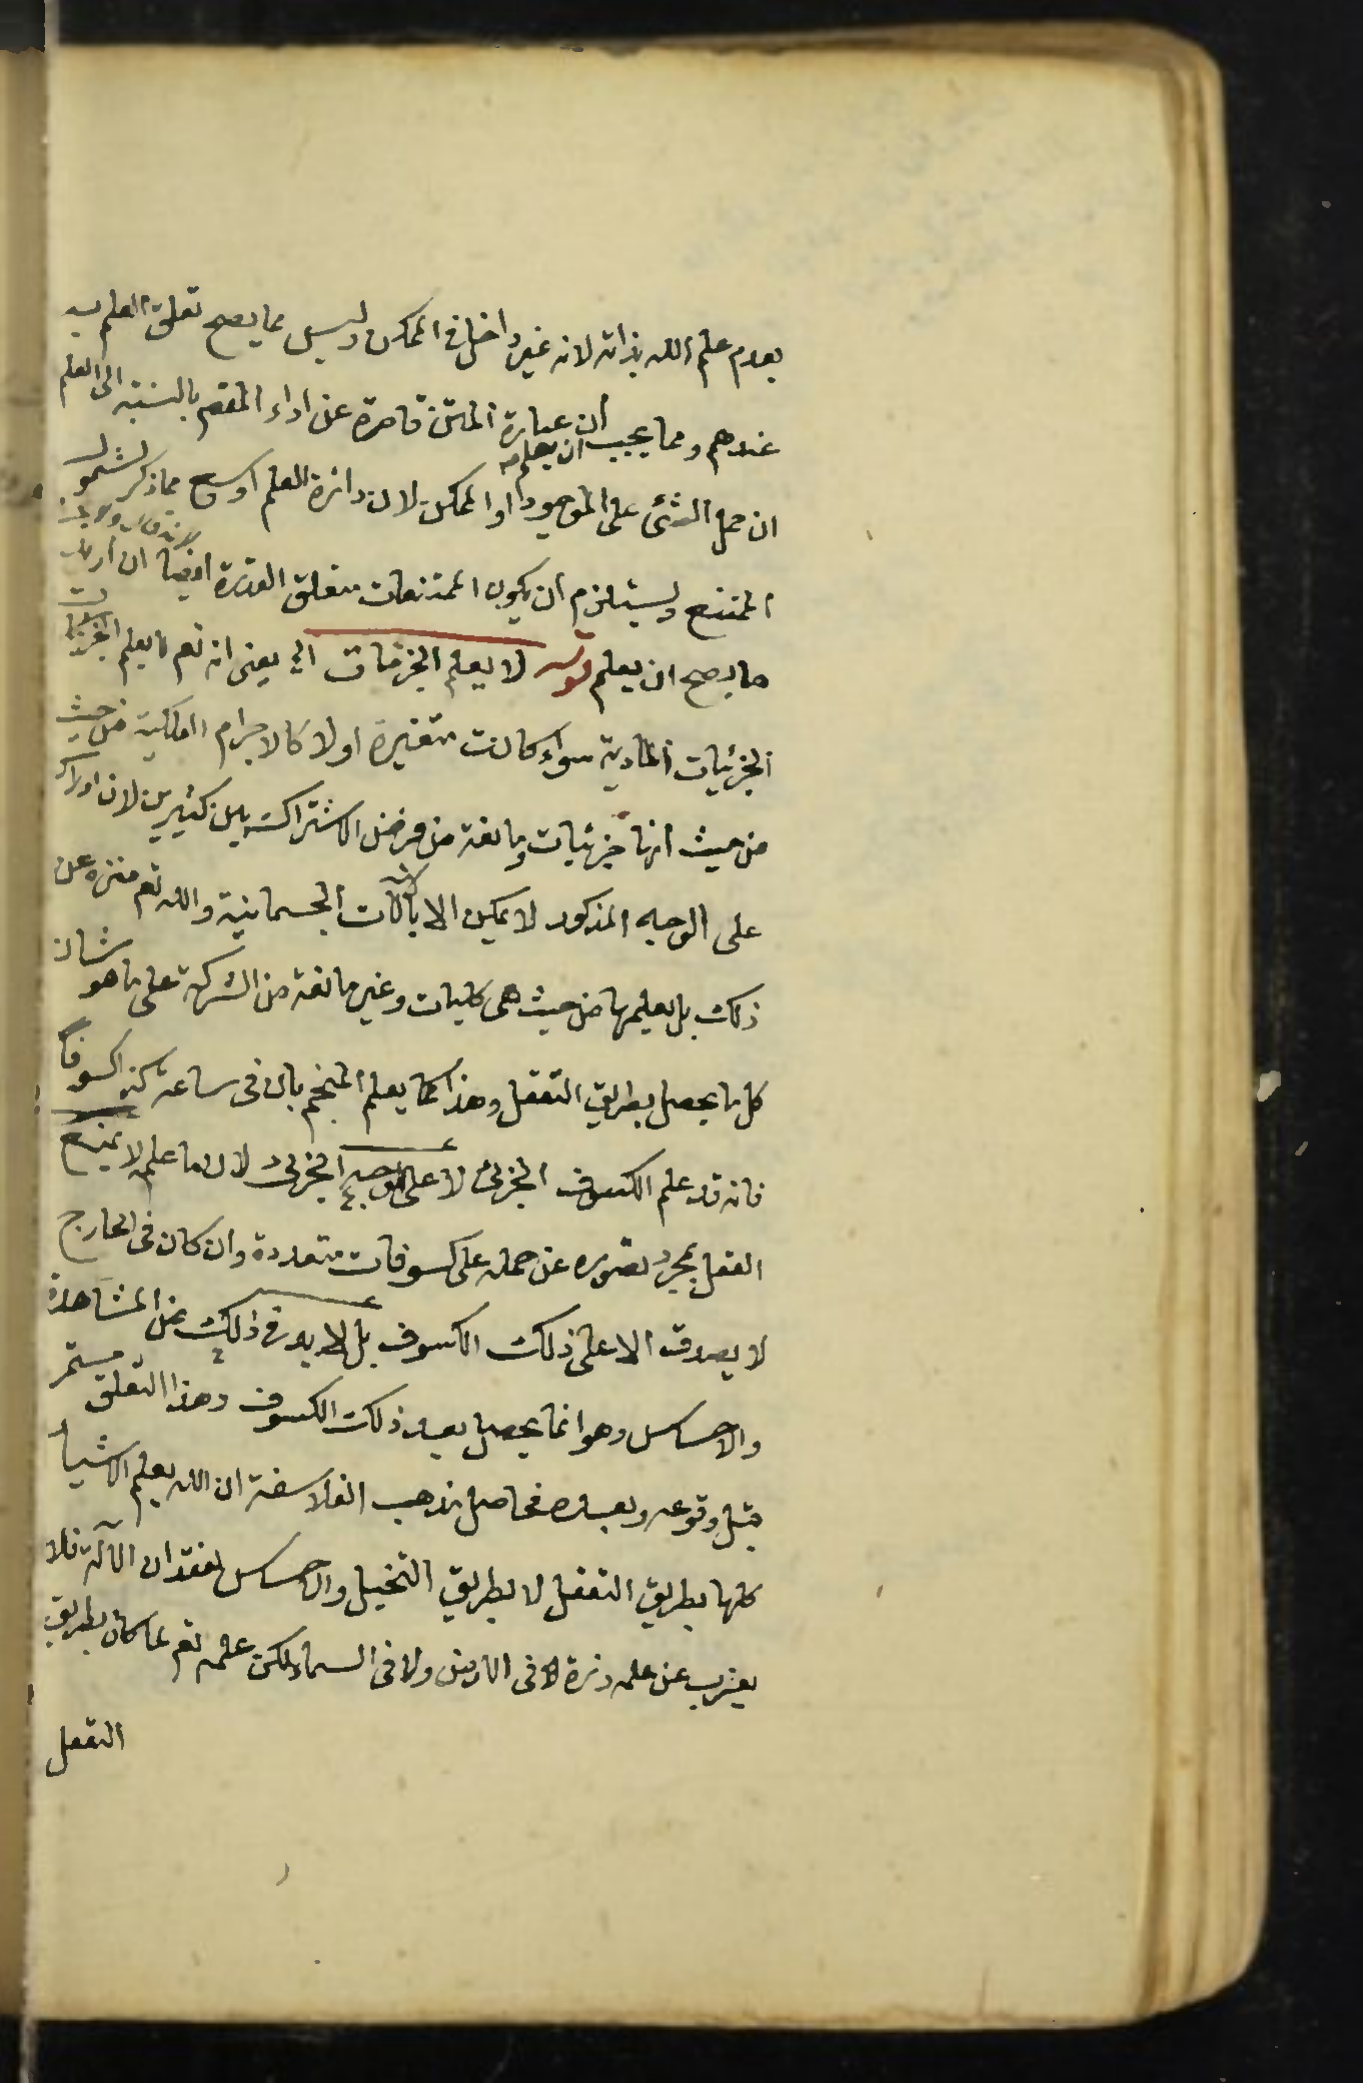 بعدم علم الله بذاته لانه غير داخل في الممكن وليس مما يصح تعلق العلم به
عندهم ومما يجب ان يعلم ان عبارة المتن قاصرة عن اداء المقصم بالنسبة الى العلم
ان حمل الشئ على الموجود او الممكن لان دائرة العلم اوسع مما ذكر لشمول
الممتنع ويستلزم ان يكون الممتنعات متعلق القدرة ايضا ان اريد
ما يصح ان يعلم قوله لا يعلم الجزئيات الخ يعني انه تع لا يعلم الجزئيات
الجزئيات المادية سواء كانت متغيرة او لا كالاجرام الفلكية من حيث
من حيث انها جزئيات ومانعة من فرض الاشتراك بين كثيرين لان ادراك
على الوجه المذكور لا يمكن الا بالآلات الجسمانية والله تع منزه عن
ذلك بل يعلمها من حيث هي كليات وغير مانعة من الشركة على ما هو شان
كل ما يحصل بطريق التعقل وهذا كما يعلم المنجم بان في ساعة كذا كسوفا
فانه قد علم الكسوف الجزئي لا على الوجه الجزئي لان ما علمه لا يمنع
العقل بمجرد تصوره عن حمله على كسوفات متعددة وان كان في الخارج
لا يصدق الا على ذلك الكسوف بل لا بد في ذلك من المشاهدة
والاحساس وهو انما يحصل بعد ذلك الكسوف وهذا التعلق مستمر
قبل وقوعه وبعده فحاصل مذهب الفلاسفة ان الله يعلم الاشياء
كلها بطريق التعقل لا بطريق التخيل والاحساس لفقدان الآلة فلا
يعزب عن علمه ذرة لا في الارض ولا في السماء لكن علمه تع لما كان بطريق
التعقل